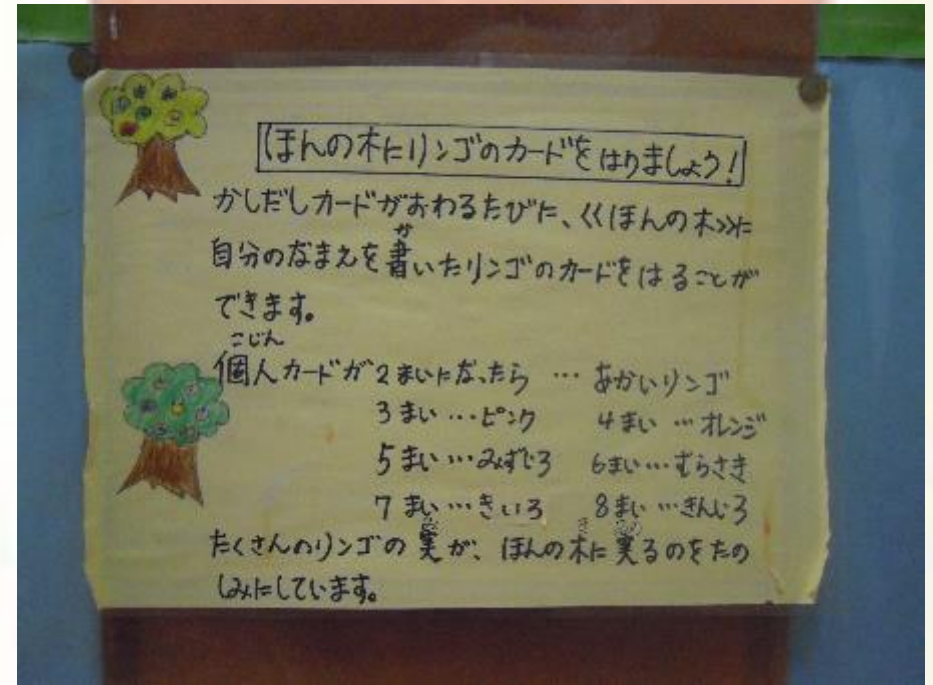 ほんの木にリンゴのカードをはりましょう!
かしだしカードがおわるたびに、≪ほんの木≫に
か
自分のなまえを書いたリンゴのカードをはることが
できます。
こじん
個人カードが2まいになったら … あかいリンゴ
3まい…ピンク 4まい…オレンジ
5まい…みずいろ 6まい…むらさき
7まい…きいろ 8まい…きんいろ
たくさんのリンゴの実が、ほんの木に実るのをたの
しみにしています。